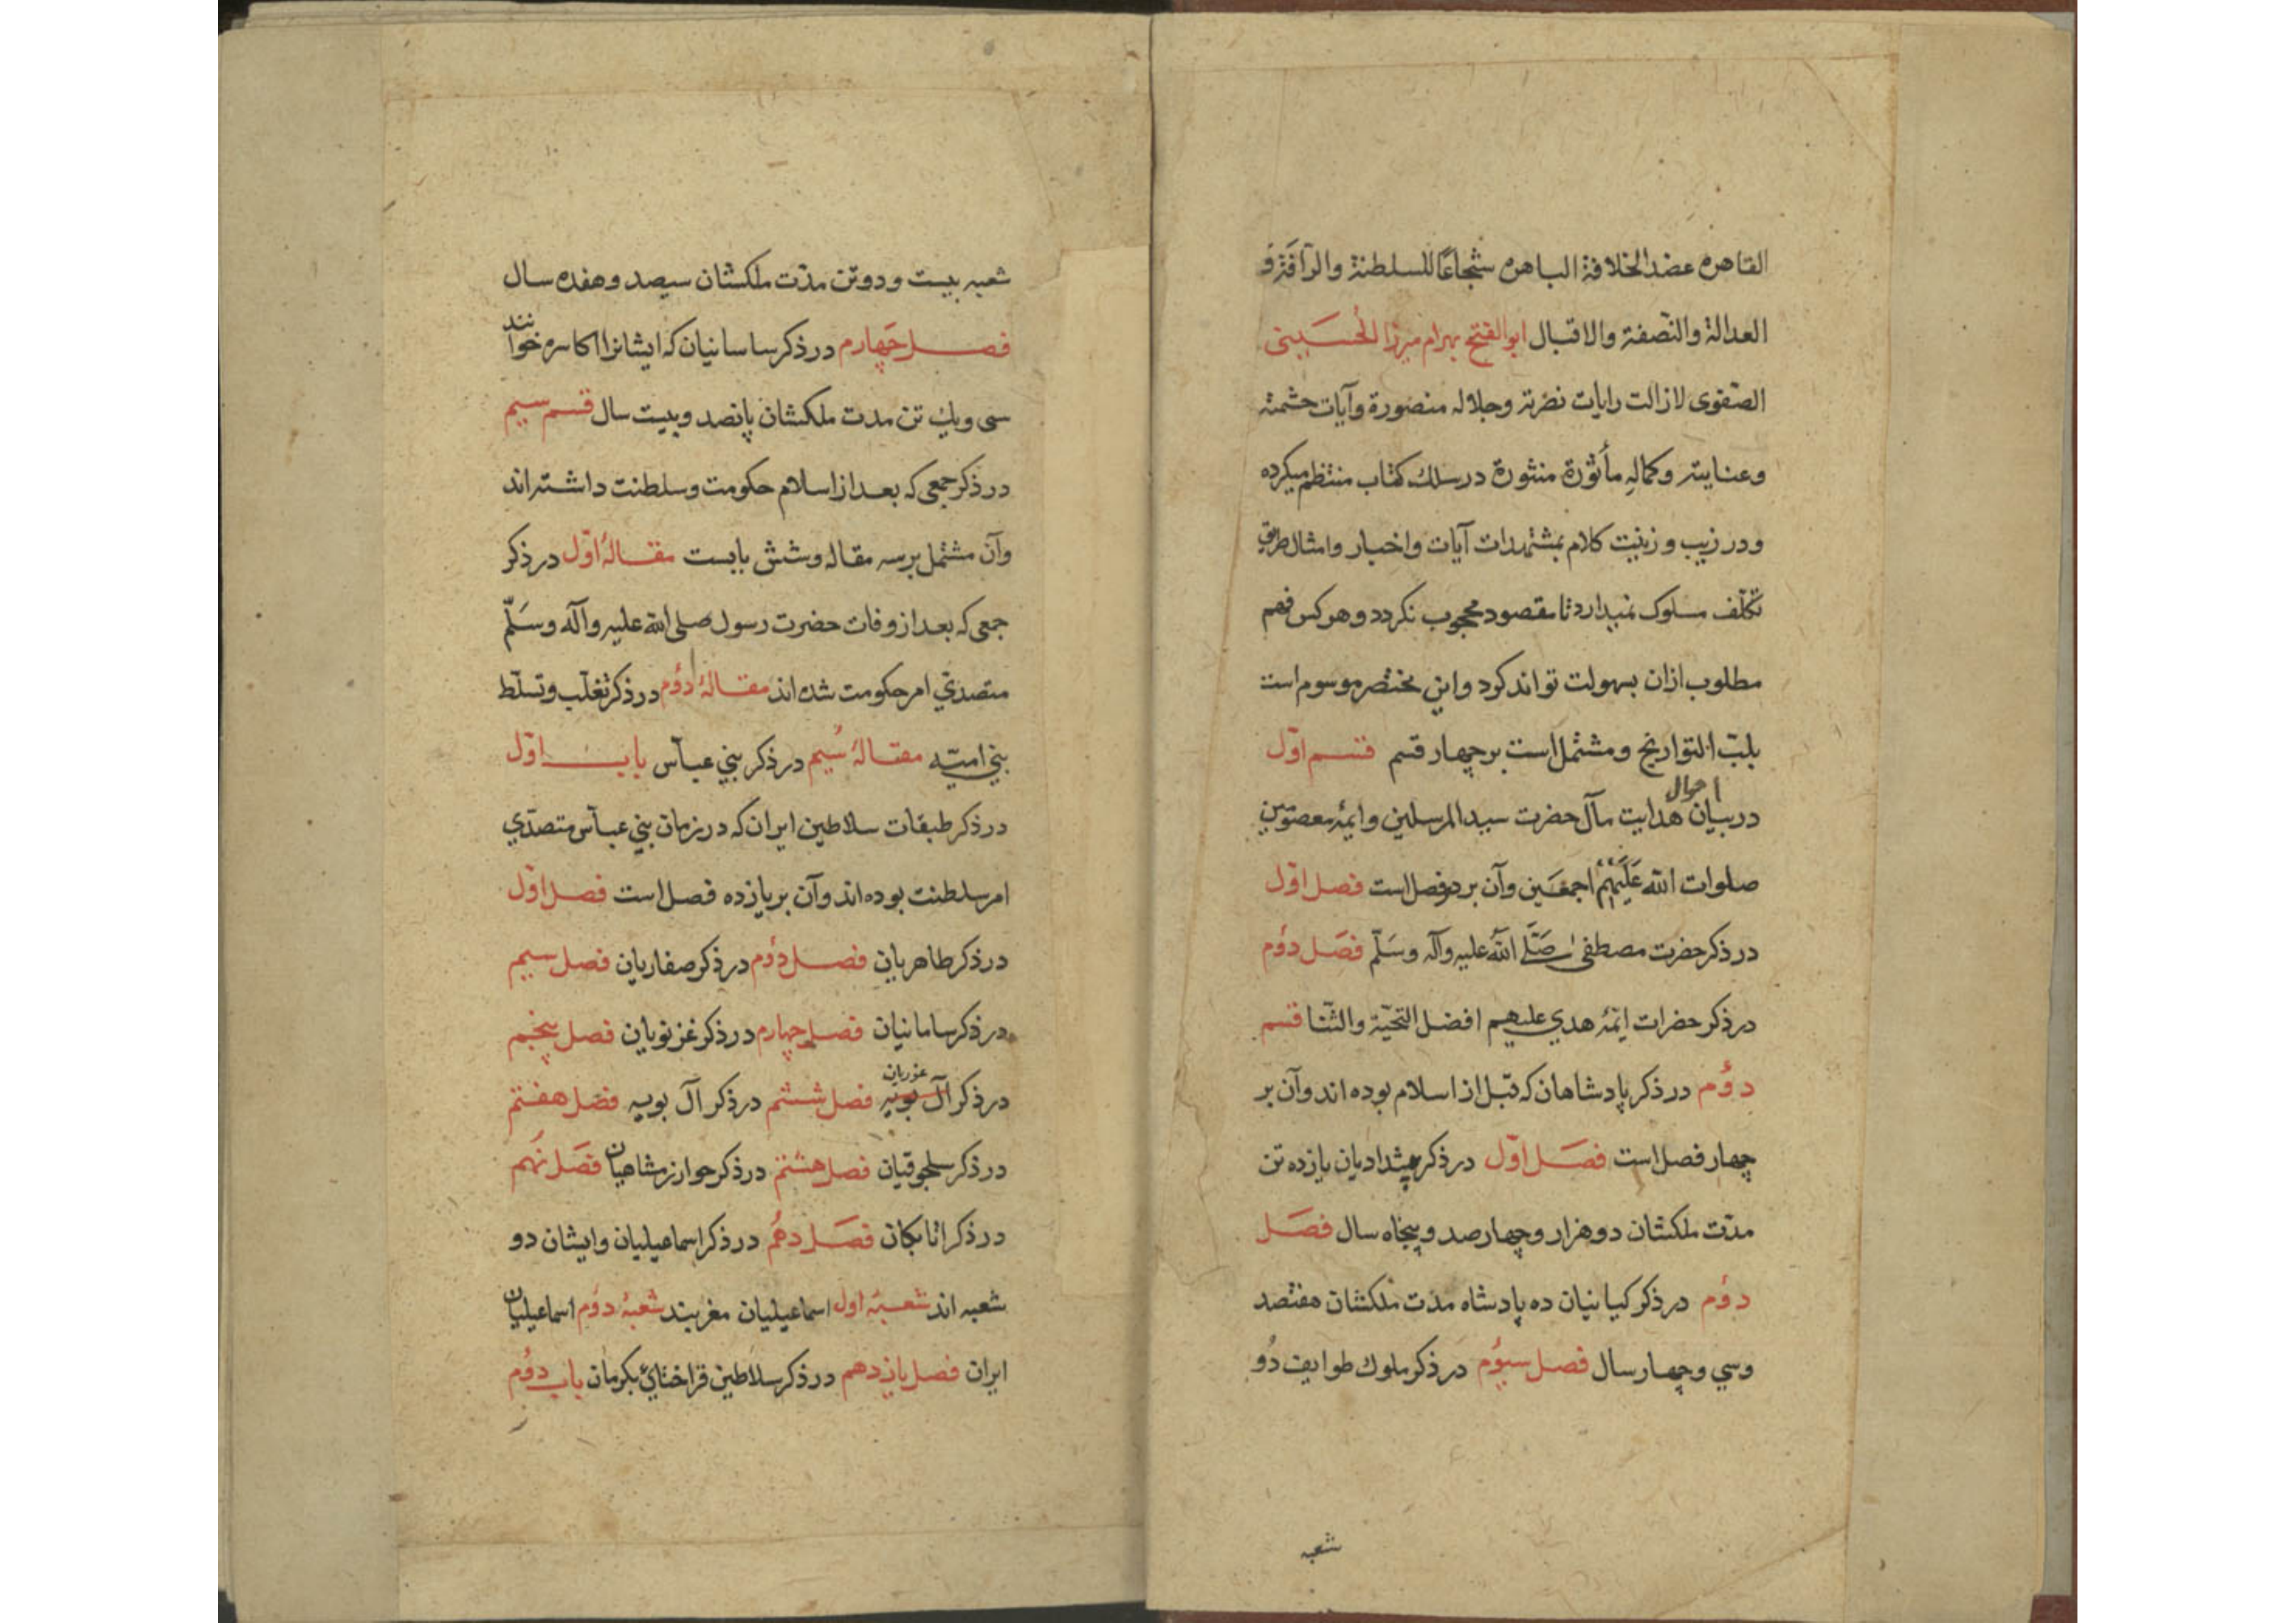 القاهره عضد الخلافة الباهره شجاعًا للسلطنة والرآفة و
العدالة والنصفة والاقبال ابوالفتح بهرام میرزا الحسینی
الصفوی لازالت رایات نصرته وجلاله منصورة وآیات حشمته
وعنایته وکماله مأثورة منثورة در سلك کتاب منتظم میکرده
ودر زیب و زینت کلام بمشتهرات آیات واخبار وامثال طریق
تکلّف مسلوک نمیدارد تا مقصود محجوب نکردد وهر کس فهم
مطلوب ازان بسهولت تواند کرد واین مختصر موسوم است
بلبّ التواریخ ومشتمل است بر چهار قسم قسم اوّل
در بیان احوال هدایت مآل حضرت سید المرسلین وایمّهٔ معصومین
صلوات اللّه عَلَیْهِمْ اجمعَین وآن بر دو فصل است فصل اوّل
در ذکر حضرت مصطفی صَلَّی اللّهُ علیه وآله وسَلّم فصَل دوُم
در ذکر حضرات ایمّهٔ هدي علیهم افضل التحیّة والثّنا قسم
دوُم در ذکر پادشاهان که قبل از اسلام بوده اند وآن بر
چهار فصل است فصَل اوّل در ذکر پیشدادیان یازده تن
مدّت ملکشان دو هزار وچهار صد و پنجاه سال فصَل
دوُم در ذکر کیانیان ده پادشاه مدّت ملکشان هفتصد
وسي وچهار سال فصل سیوُم در ذکر ملوك طوایف دُو
شعبه
شعبه بیست ودو تن مدّت ملکشان سیصد وهفده سال
فصل چَهارم در ذکر ساسانیان که ایشانرا اکاسره خوانند
سی ویك تن مدت ملکشان پانصد وبیست سال قسم سیم
در ذکر جمعی که بعد از اسلام حکومت وسلطنت داشته اند
وآن مشتمل بر سه مقاله وشش بابست مقالهٔ اوّل در ذکر
جمعی که بعد از وفات حضرت رسول صلی اللّه علیه وآله وسَلّم
متصدّي امر حکومت شده اند مقالهٔ دوُم در ذکر تغلّب وتسلّط
بني امیّه مقالهٔ سیُم در ذکر بني عبّاس باب اوّل
در ذکر طبقات سلاطین ایران که در زمان بني عبّاس متصدّي
امر سلطنت بوده اند وآن بر یازده فصل است فصل اوّل
در ذکر طاهریان فصل دوُم در ذکر صفاریان فصل سیم
در ذکر سامانیان فصل چهارم در ذکر غزنویان فصل پنجم
در ذکر آل بویه غوریان فصل ششم در ذکر آل بویه فصَل هفتم
در ذکر سلجوقیان فصل هشتم در ذکر خوارزمشاهیان فصَل نهُم
در ذکر اتابکان فصَل دهُم در ذکر اسماعیلیان وایشان دو
شعبه اند شعبهٔ اول اسماعیلیان مغربیند شعبهٔ دوُم اسماعیلیان
ایران فصل یازدهم در ذکر سلاطین قراختائي بکرمان باب دوُم